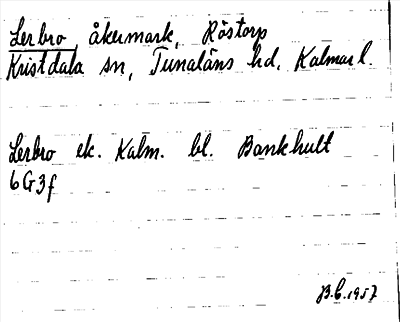 Lerbro, åkermark, Röstorp
Kristdala sn, Tunaläns hd, Kalmar l.
Lerbro ek. Kalm. bl. Bankhult
6G3f
B.E. 1957